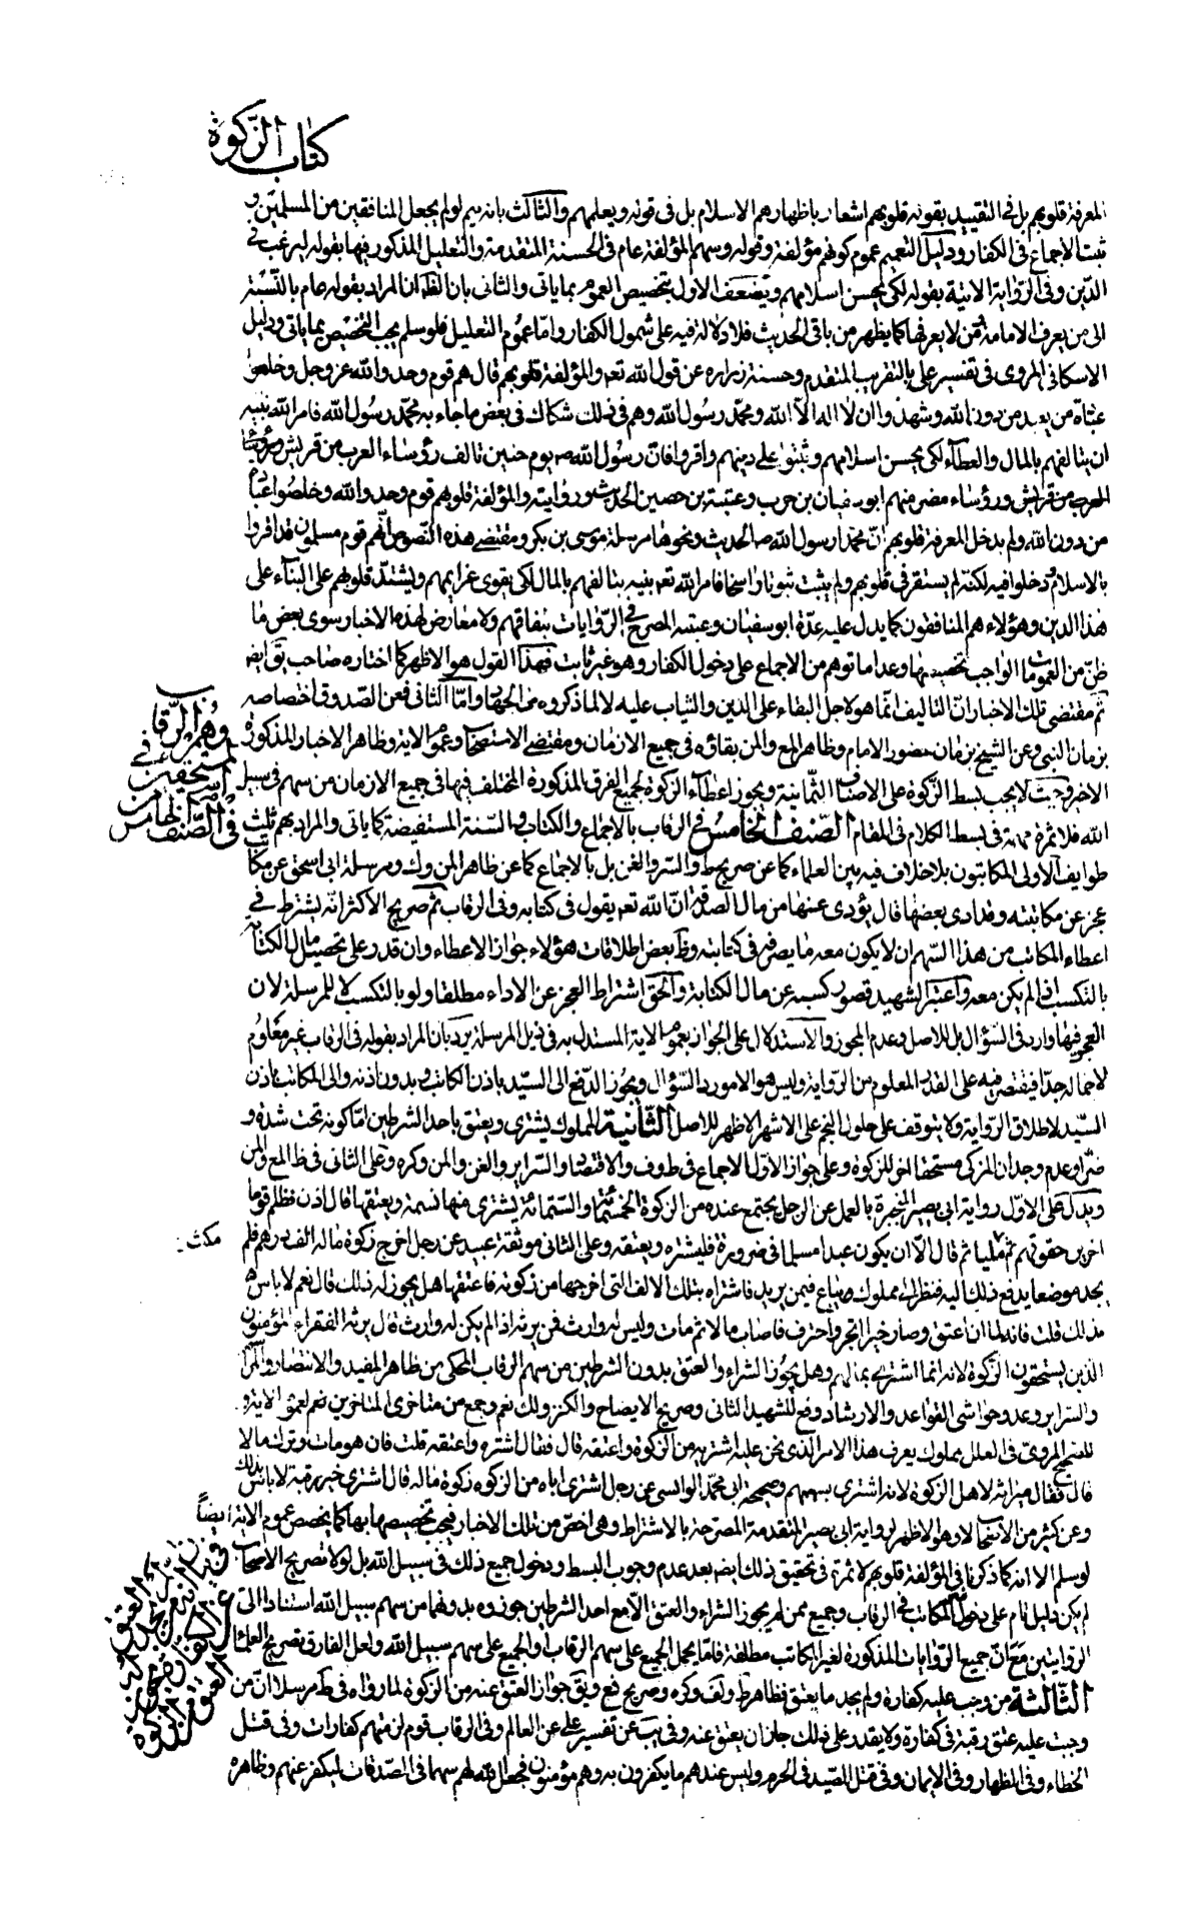 كتاب الزكوة
المعرفة قلوبهم بل في التقييد بقوله قلوبهم اشعار باظهارهم الاسلام بل في قوله ويعلمهم والثالث بانه لو لم يجعل المنافقين من المسلمين و
ثبت الاجماع في الكفار ودليل التعميم عموم كونهم مؤلفة وقوله وسهم المؤلفة عام في الحسنة المتقدمة والتعليل المذكور فيها بقوله ليرغب في
الدين وفي الرواية الاتية بقوله لكي يحسن اسلامهم ويضعف الاول بتخصيص العموم بما ياتي والثاني بان الظاهر ان المراد بقوله عام بالنسبة
الى من يعرف الامامة ومن لا يعرفها كما يظهر من باقي الحديث فلا دلالة فيه على شمول الكفار واما عموم التعليل فلو سلم يجب التخصيص بما ياتي ودليل
الاسكافي المروي في تفسير علي بالتقريب المتقدم وحسنة زراره عن قول الله تعه والمؤلفة قلوبهم قال هم قوم وحدوا الله عز وجل وخلعوا
عبادة من يعبد من دون الله وشهدوا ان لا اله الا الله ومحمد رسول الله وهم في ذلك شكاك في بعض ما جاء به محمد رسول الله فامر الله نبيه
ان يتالفهم بالمال والعطاء لكي يحسن اسلامهم ويثبتوا على دينهم واقروا فان رسول الله ص يوم حنين تالف رؤساء العرب من قريش
العرب من قريش ورؤساء مضر منهم ابو سفيان بن حرب وعتبة بن حصين الحديث وروايته والمؤلفة قلوبهم قوم وحدوا الله وخلصوا عبادة
من دون الله ولم يدخل المعرفة قلوبهم ان محمدا رسول الله ص الحديث ونحوها مرسلة موسى بن بكر ومقتضى هذه النصوص انهم قوم مسلمون قد اقروا
بالاسلام ودخلوا فيه لكنه لم يستقر في قلوبهم ولم يثبت ثبوتا راسخا فامر الله تعه نبيه بتالفهم بالمال لكي يقوى عزايمهم ويشتد قلوبهم على البقاء على
هذا الدين وهؤلاء هم المنافقون كما يدل عليه عدة ابو سفيان وعتبه المصرح في الروايات بنفاقهم ولا معارض لهذه الاخبار سوى بعض ما
ظن من العمومات الواجب تخصيصها وعدا ما توهم من الاجماع على دخول الكفار وهو غير ثابت فهذا القول هو الاظهر كما اختاره صاحب ئق ايض
ثم مقتضى تلك الاخبار ان التاليف انما هو لاجل البقاء على الدين والثبات عليه لا لما ذكروه من الجهاد واما الثاني فعن الصدوق اختصاصه
بزمان النبي وعن الشيخ بزمان حضور الامام وظاهر المع والمن بقاؤه في جميع الازمان ومقتضى الاستصحاب وعموم الاية وظاهر الاخبار المذكورة
الاخير وحيث لا يجب بسط الزكوة على الاصناف الثمانية ويجوز اعطاء الزكوة لجميع الفرق المذكورة المختلف فيها في جميع الازمان من سهم في سبيل
الله فلا ثمرة مهمة في بسط الكلام في المقام الصنف الخامس في الرقاب بالاجماع والكتاب والسنة المستفيضة كما ياتي والمراد بهم ثلث
طوايف الاولى المكاتبون بلا خلاف فيه بين العلماء كما عن صريح ط والسر والغن بل بالاجماع كما عن ظاهر المن وك ومرسلة ابي اسحق عن مكاتب
عجز عن مكاتبته وقد ادى بعضها قال يؤدى عنها من مال الصدقة ان الله تعه يقول في كتابه وفي الرقاب ثم صريح الاكثر انه يشترط في
اعطاء المكاتب من هذا السهم ان لا يكون معه ما يصرفه في كتابته وظ بعض اطلاقات هؤلاء جواز الاعطاء وان قدر على تحصيل مال الكتابة
بالتكسب اذا لم يكن معه واعتبر الشهيد قصور كسبه عن مال الكتابة والحق اشتراط العجز عن الاداء مطلقا ولو بالتكسب لا للمرسلة لان
العجز فيها وارد في السؤال بل للاصل وعدم المجوز والاستدلال على الجواز بعموم الاية المستدل به في ذيل المرسلة يرد بان المراد بقوله في الرقاب غير معلوم
لاجماله جدا فيقتصر فيه على القدر المعلوم من الرواية وليس هو الا مورد السؤال ويجوز الدفع الى السيد باذن الكاتب وبدون اذنه والى المكاتب باذن
السيد لاطلاق الرواية ولا يتوقف على حلول النجم على الاشهر الاظهر للاصل الثانية المملوك يشترى ويعتق باحد الشرطين اما كونه تحت شدة و
ضر او عدم وجدان المزكي مستحقا اخر للزكوة وعلى جواز الاول الاجماع في ط وف والاقتصاد والسراير والغن والمن وكره وعلى الثاني في ظ المع والمن
ويدل على الاول رواية ابي بصير المنجبرة بالعمل عن الرجل يجتمع عنده من الزكوة الخمسمائة والستمائة يشترى منها نسمة ويعتقها قال اذن ظلم قوما
اخرين حقوقهم ثم مليا ثم قال الا ان يكون عبدا مسلما في ضرورة فليشتره ويعتقه وعلى الثاني موثقة عبيد عن رجل اخرج زكوة ماله الف درهم فلم
مكث
يجد موضعا يدفع ذلك اليه فنظر الى مملوك يباع فيمن يريد فاشتراه بتلك الالف التي اخرجها من زكوته فاعتقها هل يجوز له ذلك قال نعم لا باس
بذلك قلت فانه لما ان اعتق وصار حرا اتجر واحترف فاصاب مالا ثم مات وليس له وارث فمن يرثه اذا لم يكن له وارث قال يرثه الفقراء المؤمنون
الذين يستحقون الزكوة لانه انما اشترى بمالهم وهل يجوز الشراء والعتق بدون الشرطين من سهم الرقاب المحكي من ظاهر المفيد والانتصار
والسراير وعد وحواشي القواعد والارشاد وقع للشهيد الثاني وصريح الايضاح والكنز ولك نعم وجمع من متاخري المتاخرين نعم لعموم الاية و
للصحيح المروي في العلل مملوك يعرف هذا الامر الذي نحن عليه اشتريه من الزكوة واعتقه قال فقال اشتره واعتقه قلت فان هو مات وترك مالا
قال فقال ميراثه لاهل الزكوة لانه اشترى بسهمهم وصحيحة ابي محمد الوابشي عن رجل اشترى اباه من الزكوة زكوة ماله قال اشترى خير رقبة لا باس بذلك
وعن كثير من الاصحاب لا وهو الاظهر لرواية ابي بصير المتقدمة المصرحة بالاشتراط وهي اخص من تلك الاخبار فيجب تخصيصها بها كما يخصص عموم الاية ايضا
لو سلم الا انه كما ذكرنا في المؤلفة قلوبهم لا ثمرة في تحقيق ذلك ايضا بعد عدم وجوب البسط ودخول جميع ذلك في سبيل الله بل لولا تصريح الاصحاب
لم يكن دليل تام على دخول المكاتب في الرقاب وجميع ممن لم يجوز الشراء والعتق الا مع احد الشرطين جوزوه بدونهما من سهم سبيل الله استنادا الى
الروايتين مع ان جميع الروايات المذكورة لغير المكاتب مطلقة فاما يحمل الجميع على سهم الرقاب او الجميع على سهم سبيل الله ولعل الفارق تصريح العلماء
الثالثة من وجب عليه كفارة ولم يجد ما يعتق فظاهر ط ولف وكره وصريح فع ويق جواز العتق عنه من الزكوة لما رواه في ط مرسلا ان من
وجبت عليه عتق رقبة في كفارة ولا يقدر على ذلك جاز ان يعتق عنه وفي يب عن تفسير علي عن العالم وفي الرقاب قوم لزمتهم كفارات وفي قتل
الخطاء وفي الظهار وفي الايمان وفي قتل الصيد في الحرم وليس عندهم ما يكفرون به وهم مؤمنون فجعل الله لهم سهما في الصدقات ليكفر عنهم وظاهره
في الصنف الخامس